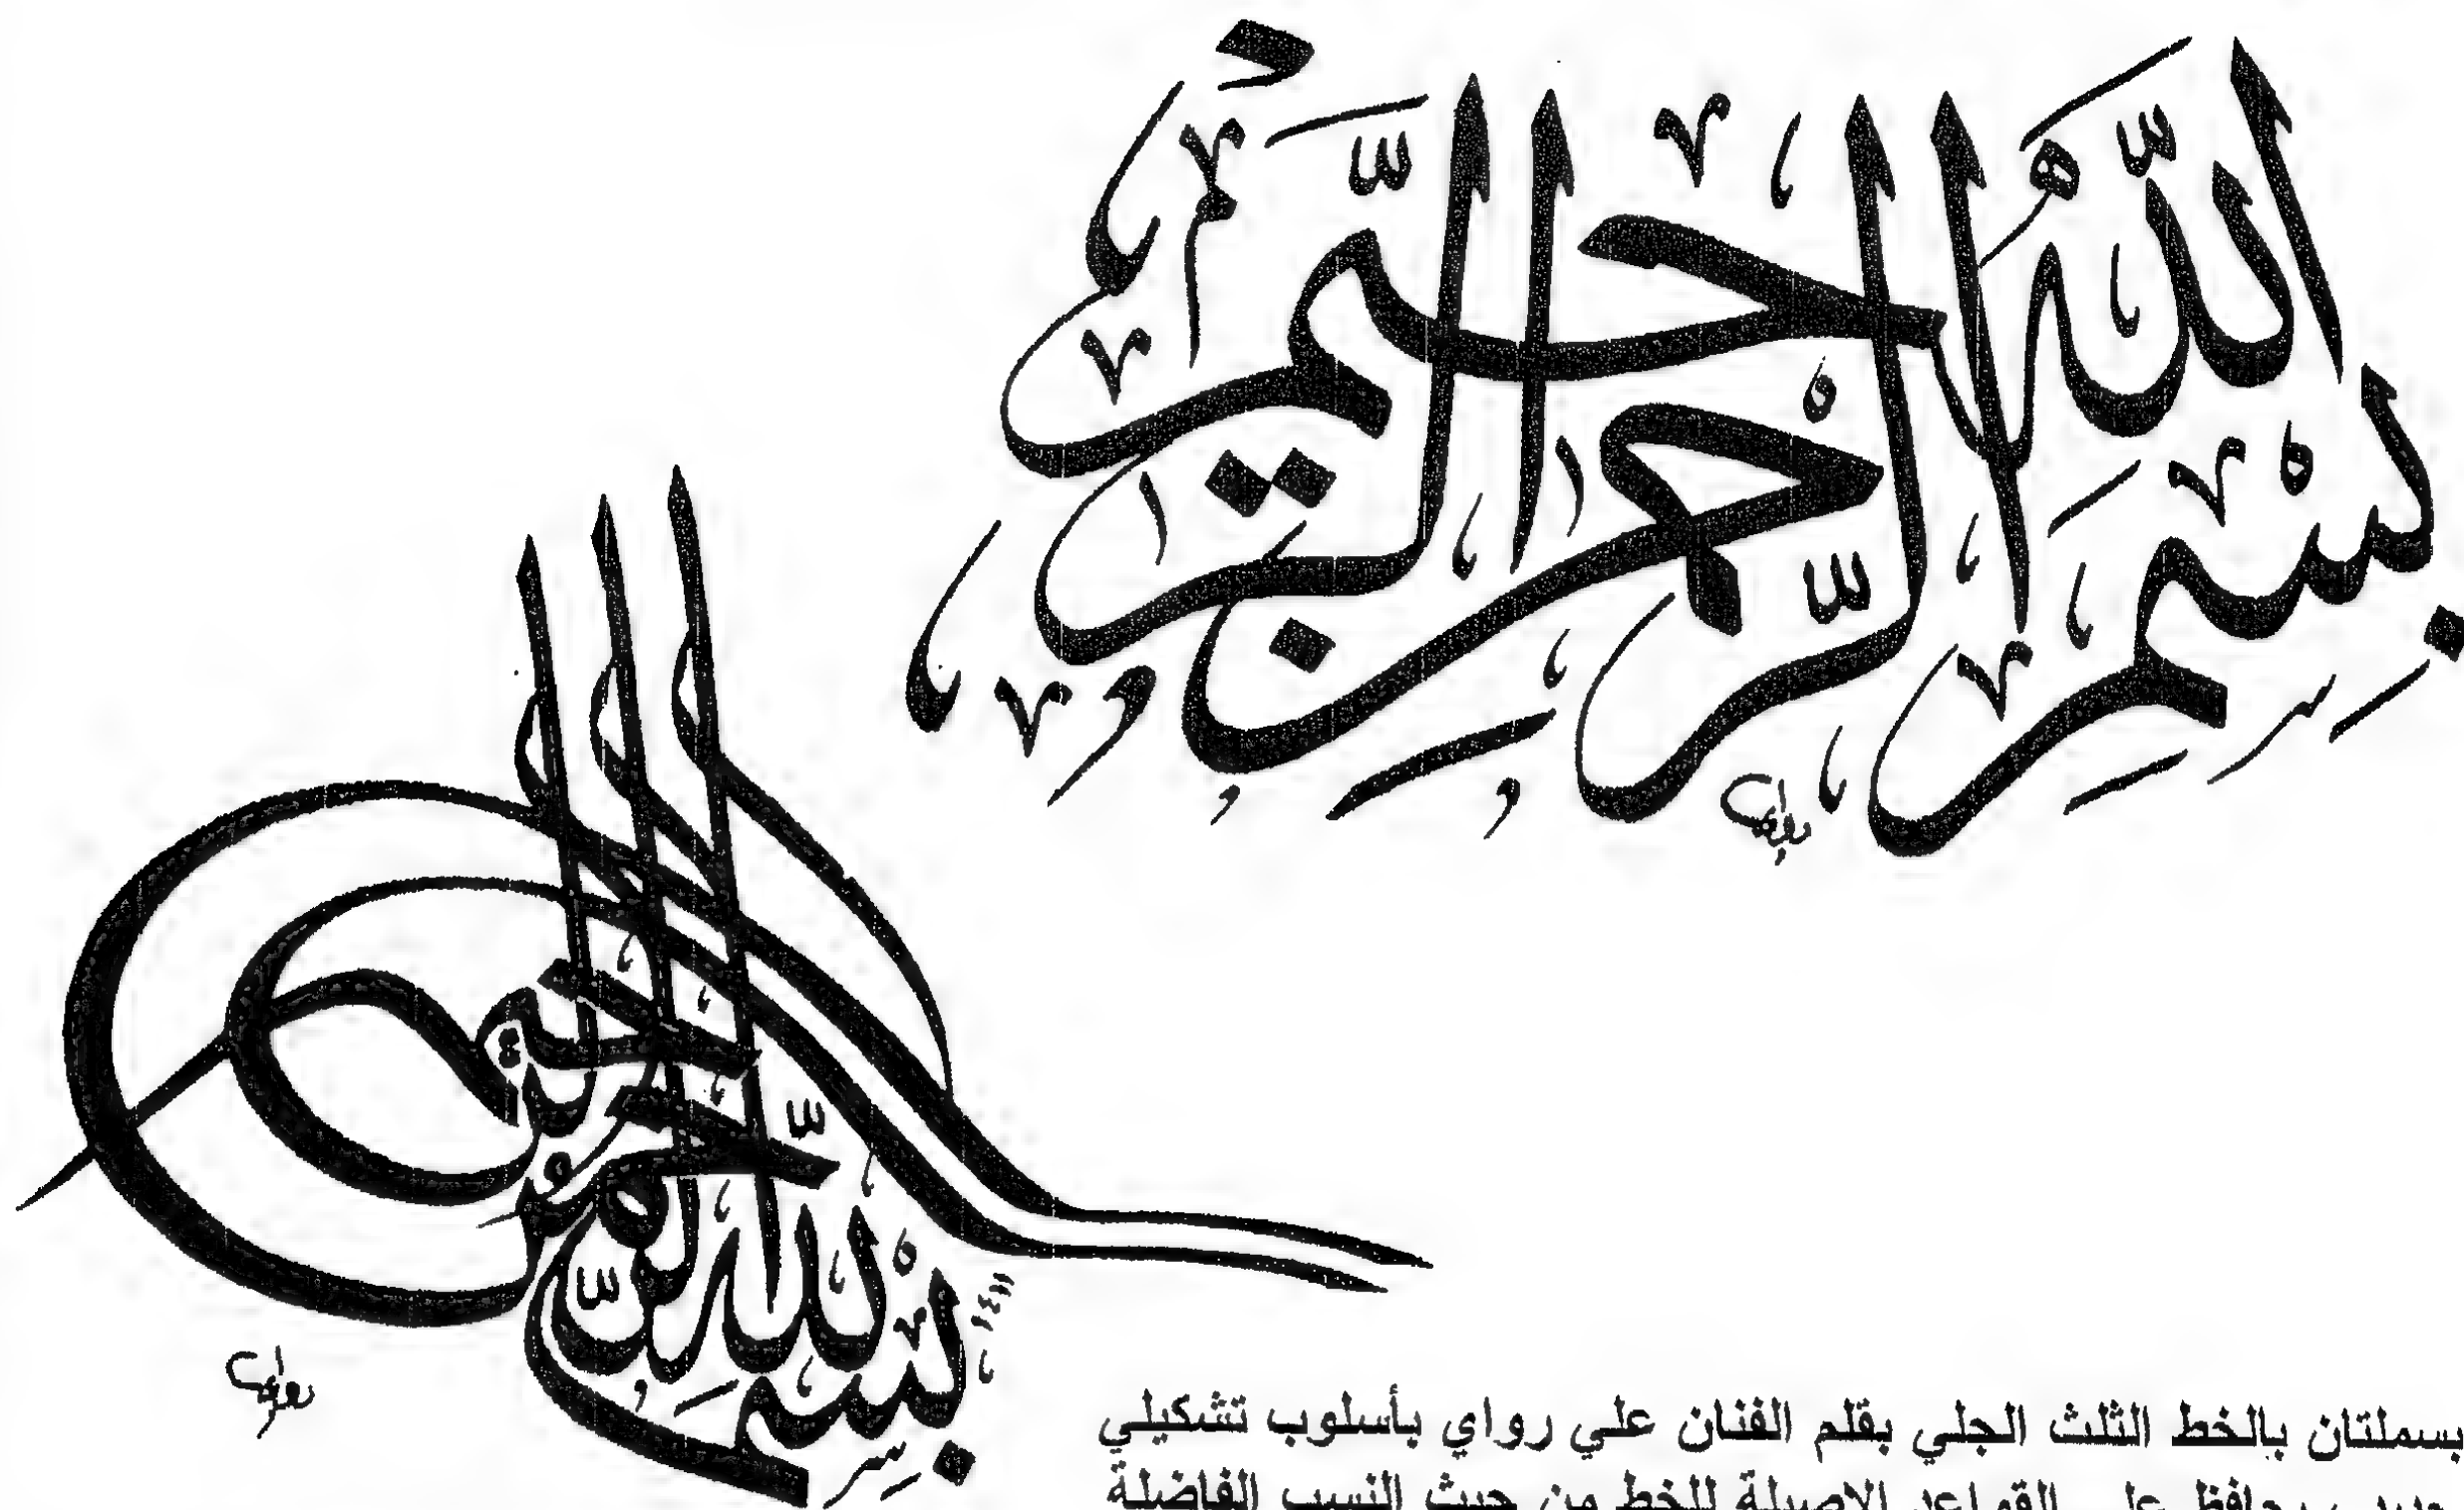 بِسْمِ اللَّهِ الرَّحْمَنِ الرَّحِيمِ
بسم الله الرحمن الرحيم
١٤١١
بسملتان بالخط الثلث الجلي بقلم الفنان علي رواي بأسلوب تشكيلي
حافظ على القواعد الاصيلة للخط من حيث النسب الفاضلة